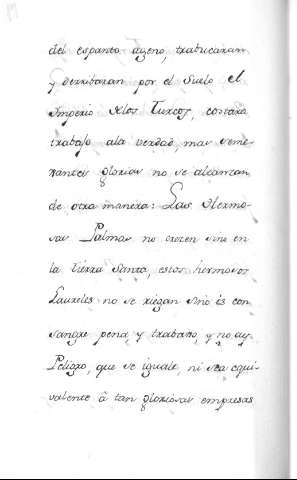 del espanto ageno, trabucaran
y derribaran por el Suelo el
Imperio delos Turcos, costara
trabajo ala verdad, mas seme-
xantes glorias no se alcanzan
de otra manera: Las Hermo-
sas Palmas no crezen sino en
la tierra Santa, estos hermosos
Laureles no se riegan sino és con
sangre pena, y trabajo, y no ay
Peligro, que se iguale, ni sea equi-
valente â tan gloriosas empresas